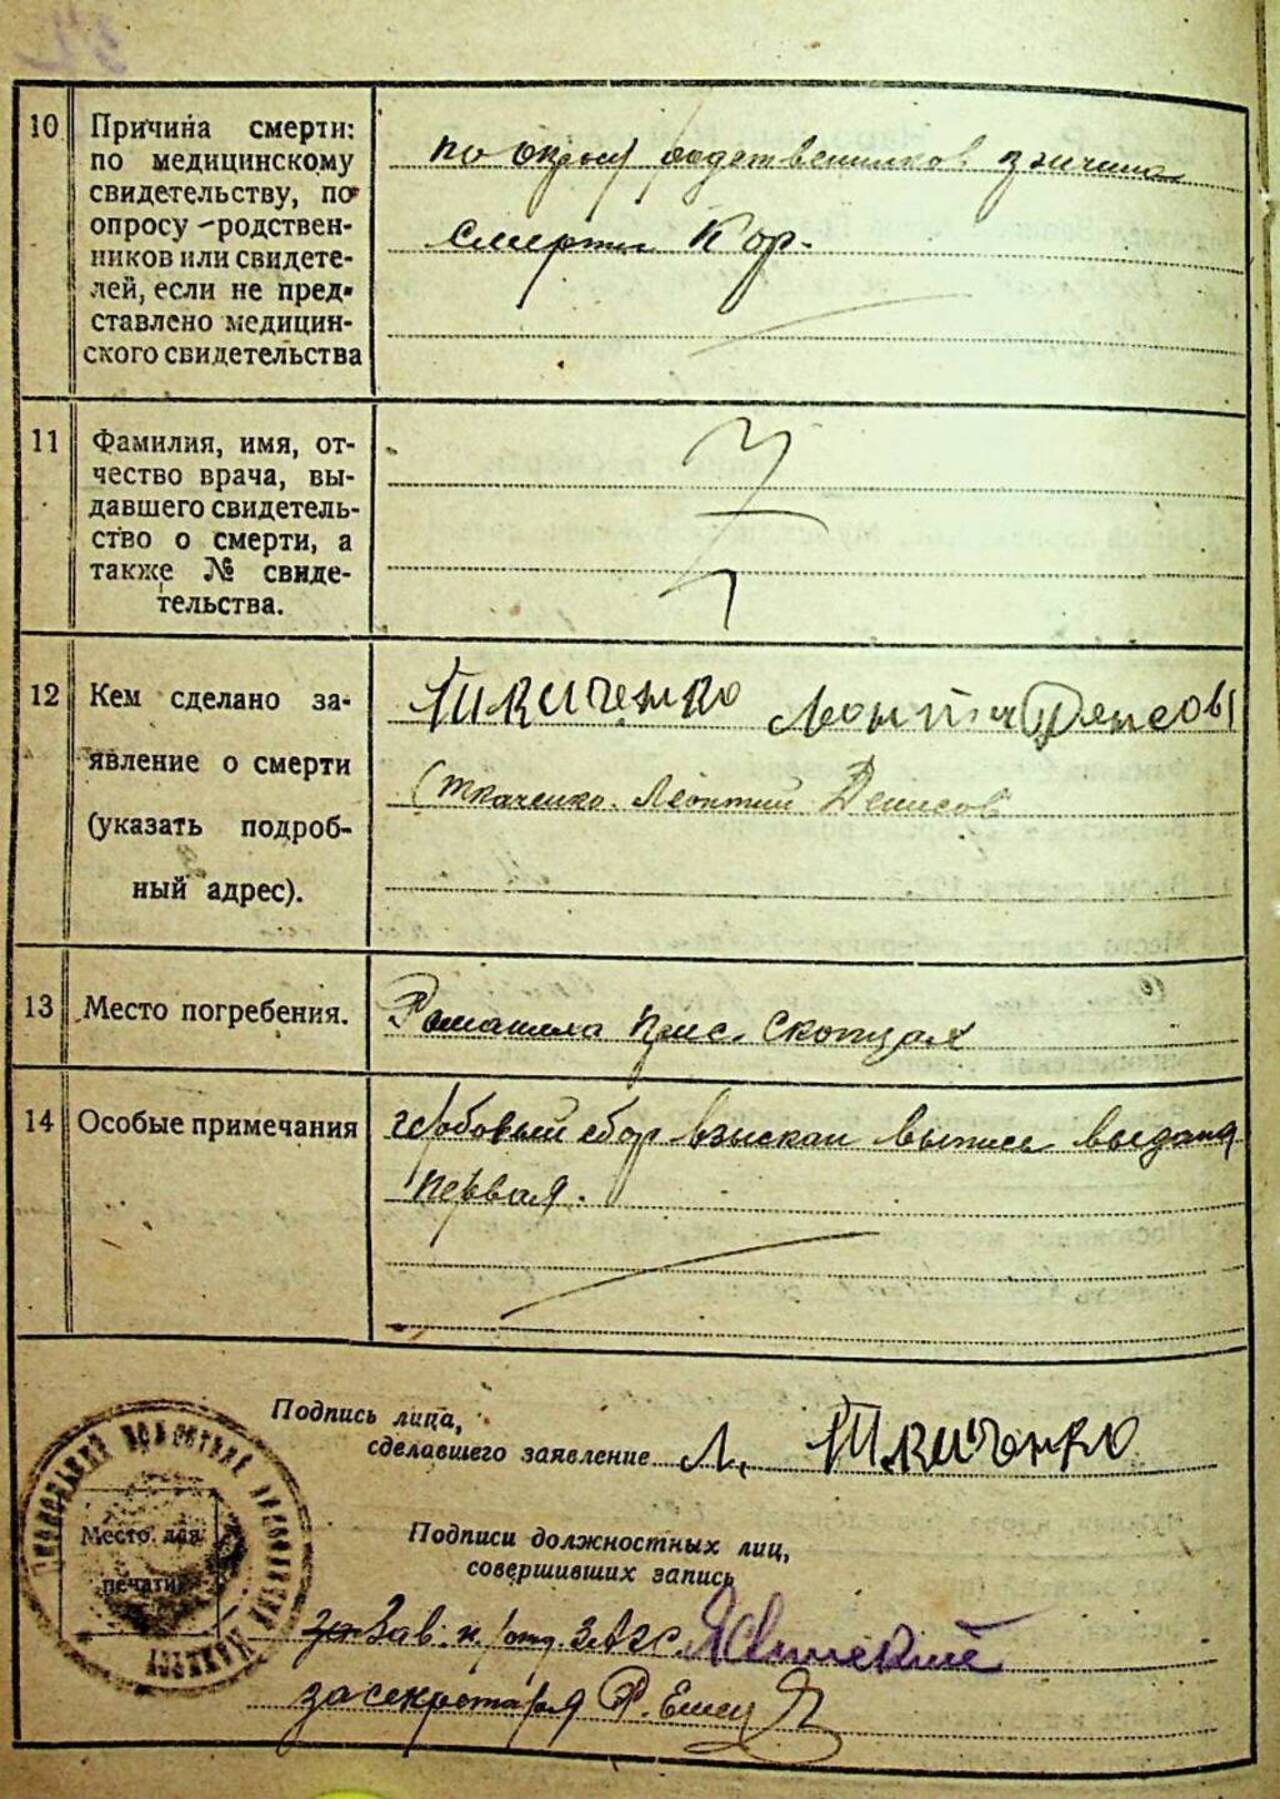 10
Причина смерти:
по медицинскому
свидетельству, по
опросу родствен-
ников или свидете-
лей, если не пред-
ставлено медицин-
ского свидетельства
по опросу родственников причина
смерти Кор.
11
Фамилия, имя, от-
чество врача, вы-
давшего свидетель-
ство о смерти, а
также № свиде-
тельства.
12
Кем сделано за-
явление о смерти
(указать подроб-
ный адрес).
Ткиченко
(Ткаченко Леонтий Денисов
13
Место погребения.
14
Особые примечания
гербовый сбор взыскан выпись выдана
первая.
Подпись лица,
сделавшего заявление Л. Ткиченко
Место для
печати
Подписи должностных лиц,
совершивших запись
Зав. п/отд. ЗАГС
за секретаря